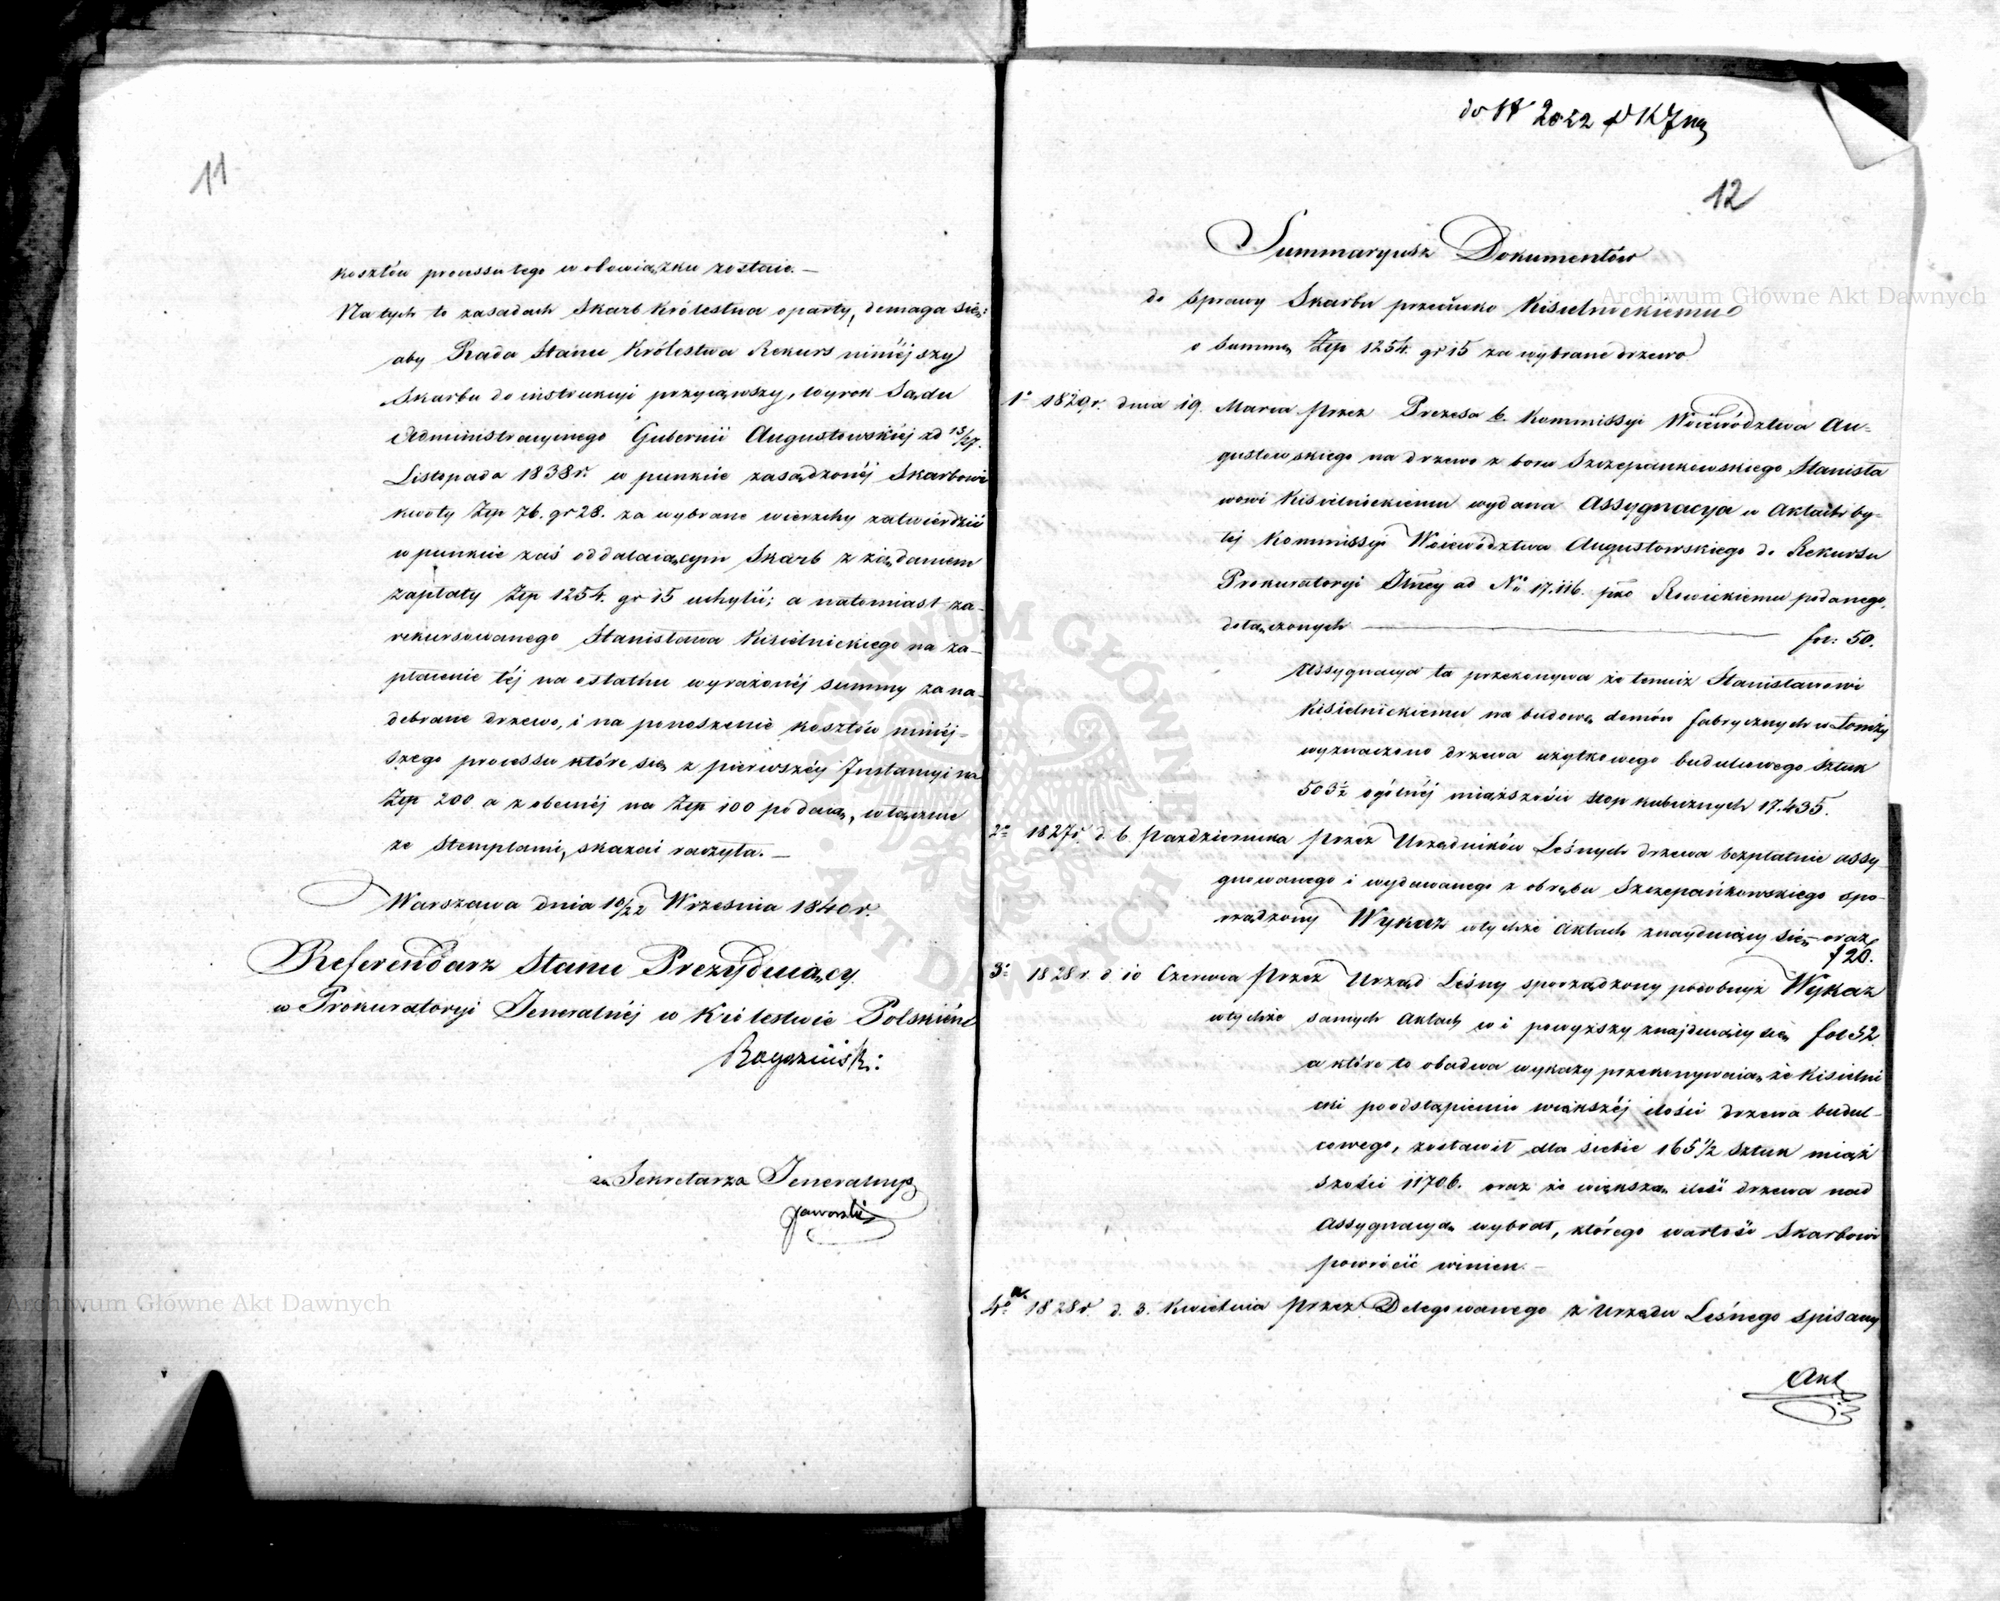 11
kosztów processu tego w obowiązku zostaie. —
Na tych to zasadach Skarb Królestwa oparty, domaga się:
aby Rada Stanu Królestwa Rekurs niniéjszy
Skarbu do instrukcyi przyiąwszy, wyrok Sądu
Administracyinego Gubernii Augustowskiéj zd 15/27.
Listopada 1838 r. w punkcie zasądzonéj Skarbowi
kwoty Złp 76. gr 28. za wybrane wierzchy zatwierdzić
w punkcie zaś oddalaiącym Skarb z żądaniem
zapłaty Złp 1254. gr 15 uchylić; a natomiast za-
rekursowanego Stanisława Kisielnickiego na za-
płacenie téj na ostatku wyrażonéj summy za na-
debrane drzewo, i na ponoszenie kosztów niniéj-
szego processu które się z pierwszéy Instancyi na
Złp 200 a z obecnéj na Złp 100 podaią, włącznie
ze stemplami, skazać raczyła. —
Warszawa dnia 10/22 Września 1840 r.
Referendarz Stanu Prezyduiący
w Prokuratoryi Jeneralnéj w Królestwie Polskiém
za Sekretarza Jeneralnego
Jaworski
do N 2022
12
Summaryusz Dokumentów
do Sprawy Skarbu przeciwko Kisielnickiemu
o Summę Złp 1254. gr 15 za wybrane drzewo
1º 1829 r. dnia 19. Marca przez Prezesa b. Kommissyi Woiewództwa Au-
gustowskiego na drzewo z boru Szczepankowskiego Stanisła
wowi Kisielnickiemu wydana Assygnacya w Aktach by-
łéj Kommissyi Woiewództwa Augustowskiego do Rekursu
Prokuratoryi Jlnéy ad Nº 17,116. pko Rowickiemu podanego,
dołączonych — fol: 50.
Assygnacya ta przekonywa że temuż Stanisławowi
Kisielnickiemu na budowę domów fabrycznych w Łomży
wyznaczono drzewa użytkowego budulcowego Sztuk
503½ ogólnéj miąższości Stop kubicznych 17.435.
2º 1827 r. d. 6 Października przez Urzędników Leśnych drzewa bezpłatnie assy
gnowanego i wydawanego z obrębu Szczepankowskiego spo-
rządzony Wykaz w tychże Aktach znayduiący się oraz
f 20.
3º 1828 r. d. 10 Czerwca przez Urząd Leśny sporządzony podobnyż Wykaz
w tychże samych Aktach w i powyższy znajduiący się fol 52
a które to obadwa wykazy przekonywaią, że Kisielni
cki po odstąpieniu większéj ilości drzewa budul-
cowego, zostawił dla siebie 165½ Sztuk miąż
szości 11706. oraz że większą ilość drzewa nad
Assygnacyą wybrał, którego wartość Skarbowi
powrócić winien. —
4º 1828 r. d. 3. Kwietnia przez Delegowanego z Urzędu Leśnego spisany
Akt
Archiwum Główne Akt Dawnych
Archiwum Główne Akt Dawnych
ARCHIWUM GŁÓWNE · AKT DAWNYCH ·